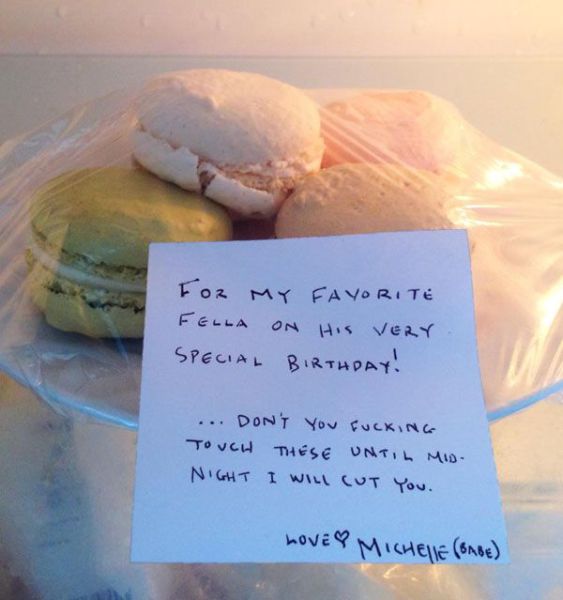 FOR MY FAVORITE
FELLA ON HIS VERY
SPECIAL BIRTHDAY!
... DON'T YOU FUCKING
TOUCH THESE UNTIL MID-
NIGHT I WILL CUT YOU.
LOVE♡ MICHEllE (BABE)